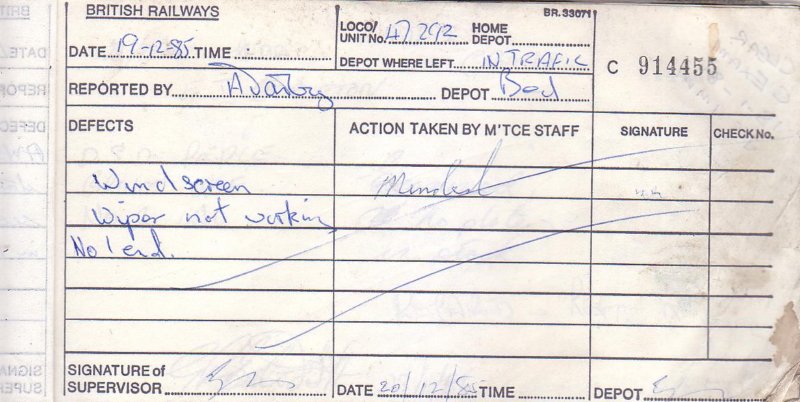 BRITISH RAILWAYS
BR.33071
DATE 19-12-85 TIME
LOCO/ UNIT No. 47292 HOME DEPOT
DEPOT WHERE LEFT IN TRAFIC
C 914455
REPORTED BY DEPOT
DEFECTS ACTION TAKEN BY M'TCE STAFF SIGNATURE CHECK No.
Windscreen
Wiper not working
No 1 end.
SIGNATURE of SUPERVISOR DATE 20/12/85 TIME DEPOT